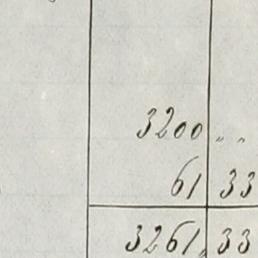 3200 " "
61 33
3261, 33